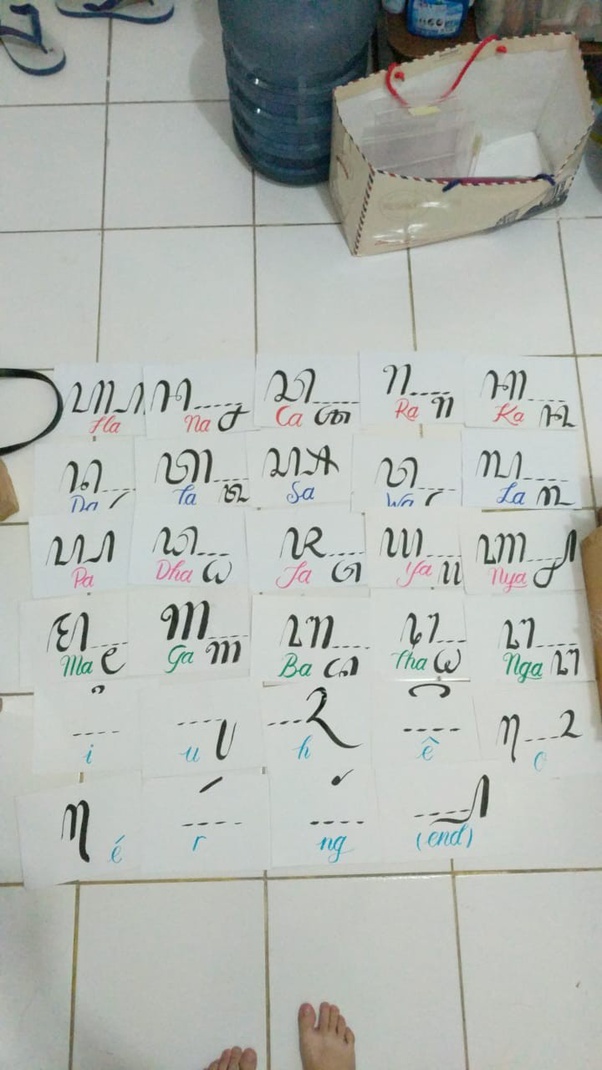 ꦲ ꧀ꦲ Ha ꦤ ꧀ꦤ Na ꦕ ꧀ꦕ Ca ꦫ ꧀ꦫ Ra ꦏ ꧀ꦏ Ka
ꦢ ꧀ꦢ Da ꦠ ꧀ꦠ Ta ꦱ ꧀ꦱ Sa ꦮ ꧀ꦮ Wa ꦭ ꧀ꦭ La
ꦥ ꧀ꦥ Pa ꦝ ꧀ꦝ Dha ꦗ ꧀ꦗ Ja ꦪ ꧀ꦪ Ya ꦚ ꧀ꦚ Nya
ꦩ ꧀ꦩ Ma ꦒ ꧀ꦒ Ga ꦧ ꧀ꦧ Ba ꦛ ꧀ꦛ Tha ꦔ ꧀ꦔ Nga
ꦶ i ꦸ u ꦃ h ꦼ ê ꦺꦴ o
ꦺ é ꦂ r ꦁ ng ꧀ (end)